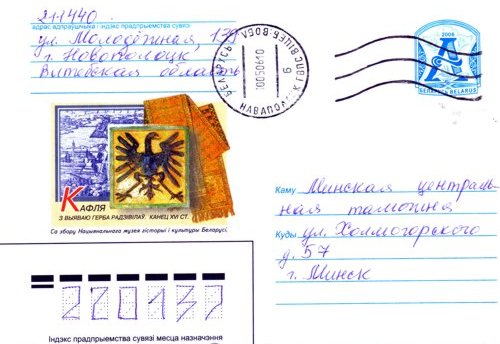 211440
адрас адпраўшчыка і індэкс прадпрыемства сувязі
ул. Молодёжная, 139
г. Новополоцк
Витебская область
2006
БЕЛАРУСЬ BELARUS
10050610
6
КАФЛЯ
З ВЫЯВАЮ ГЕРБА РАДЗІВІЛАЎ. КАНЕЦ XVI СТ.
Са збору Нацыянальнага музея гісторыі і культуры Беларусі
Каму Минская централь-
ная таможня
Куды ул. Холмогорского
д. 57
г. Минск
220137
Індэкс прадпрыемства сувязі месца назначэння